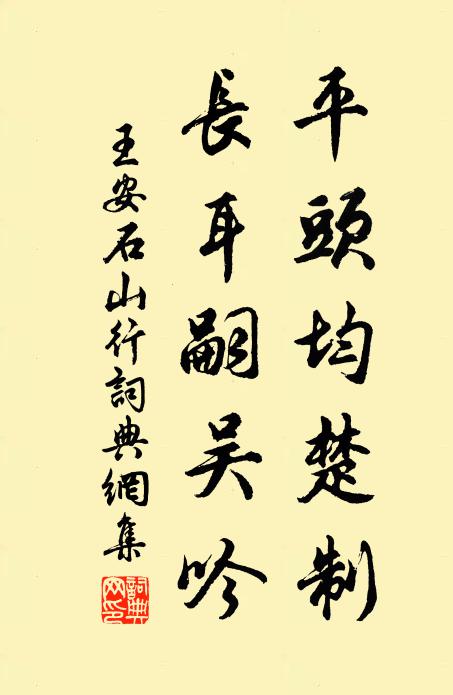 平頭均楚制
長耳嗣吴吟
王安石山行詞典網集
詞典網印